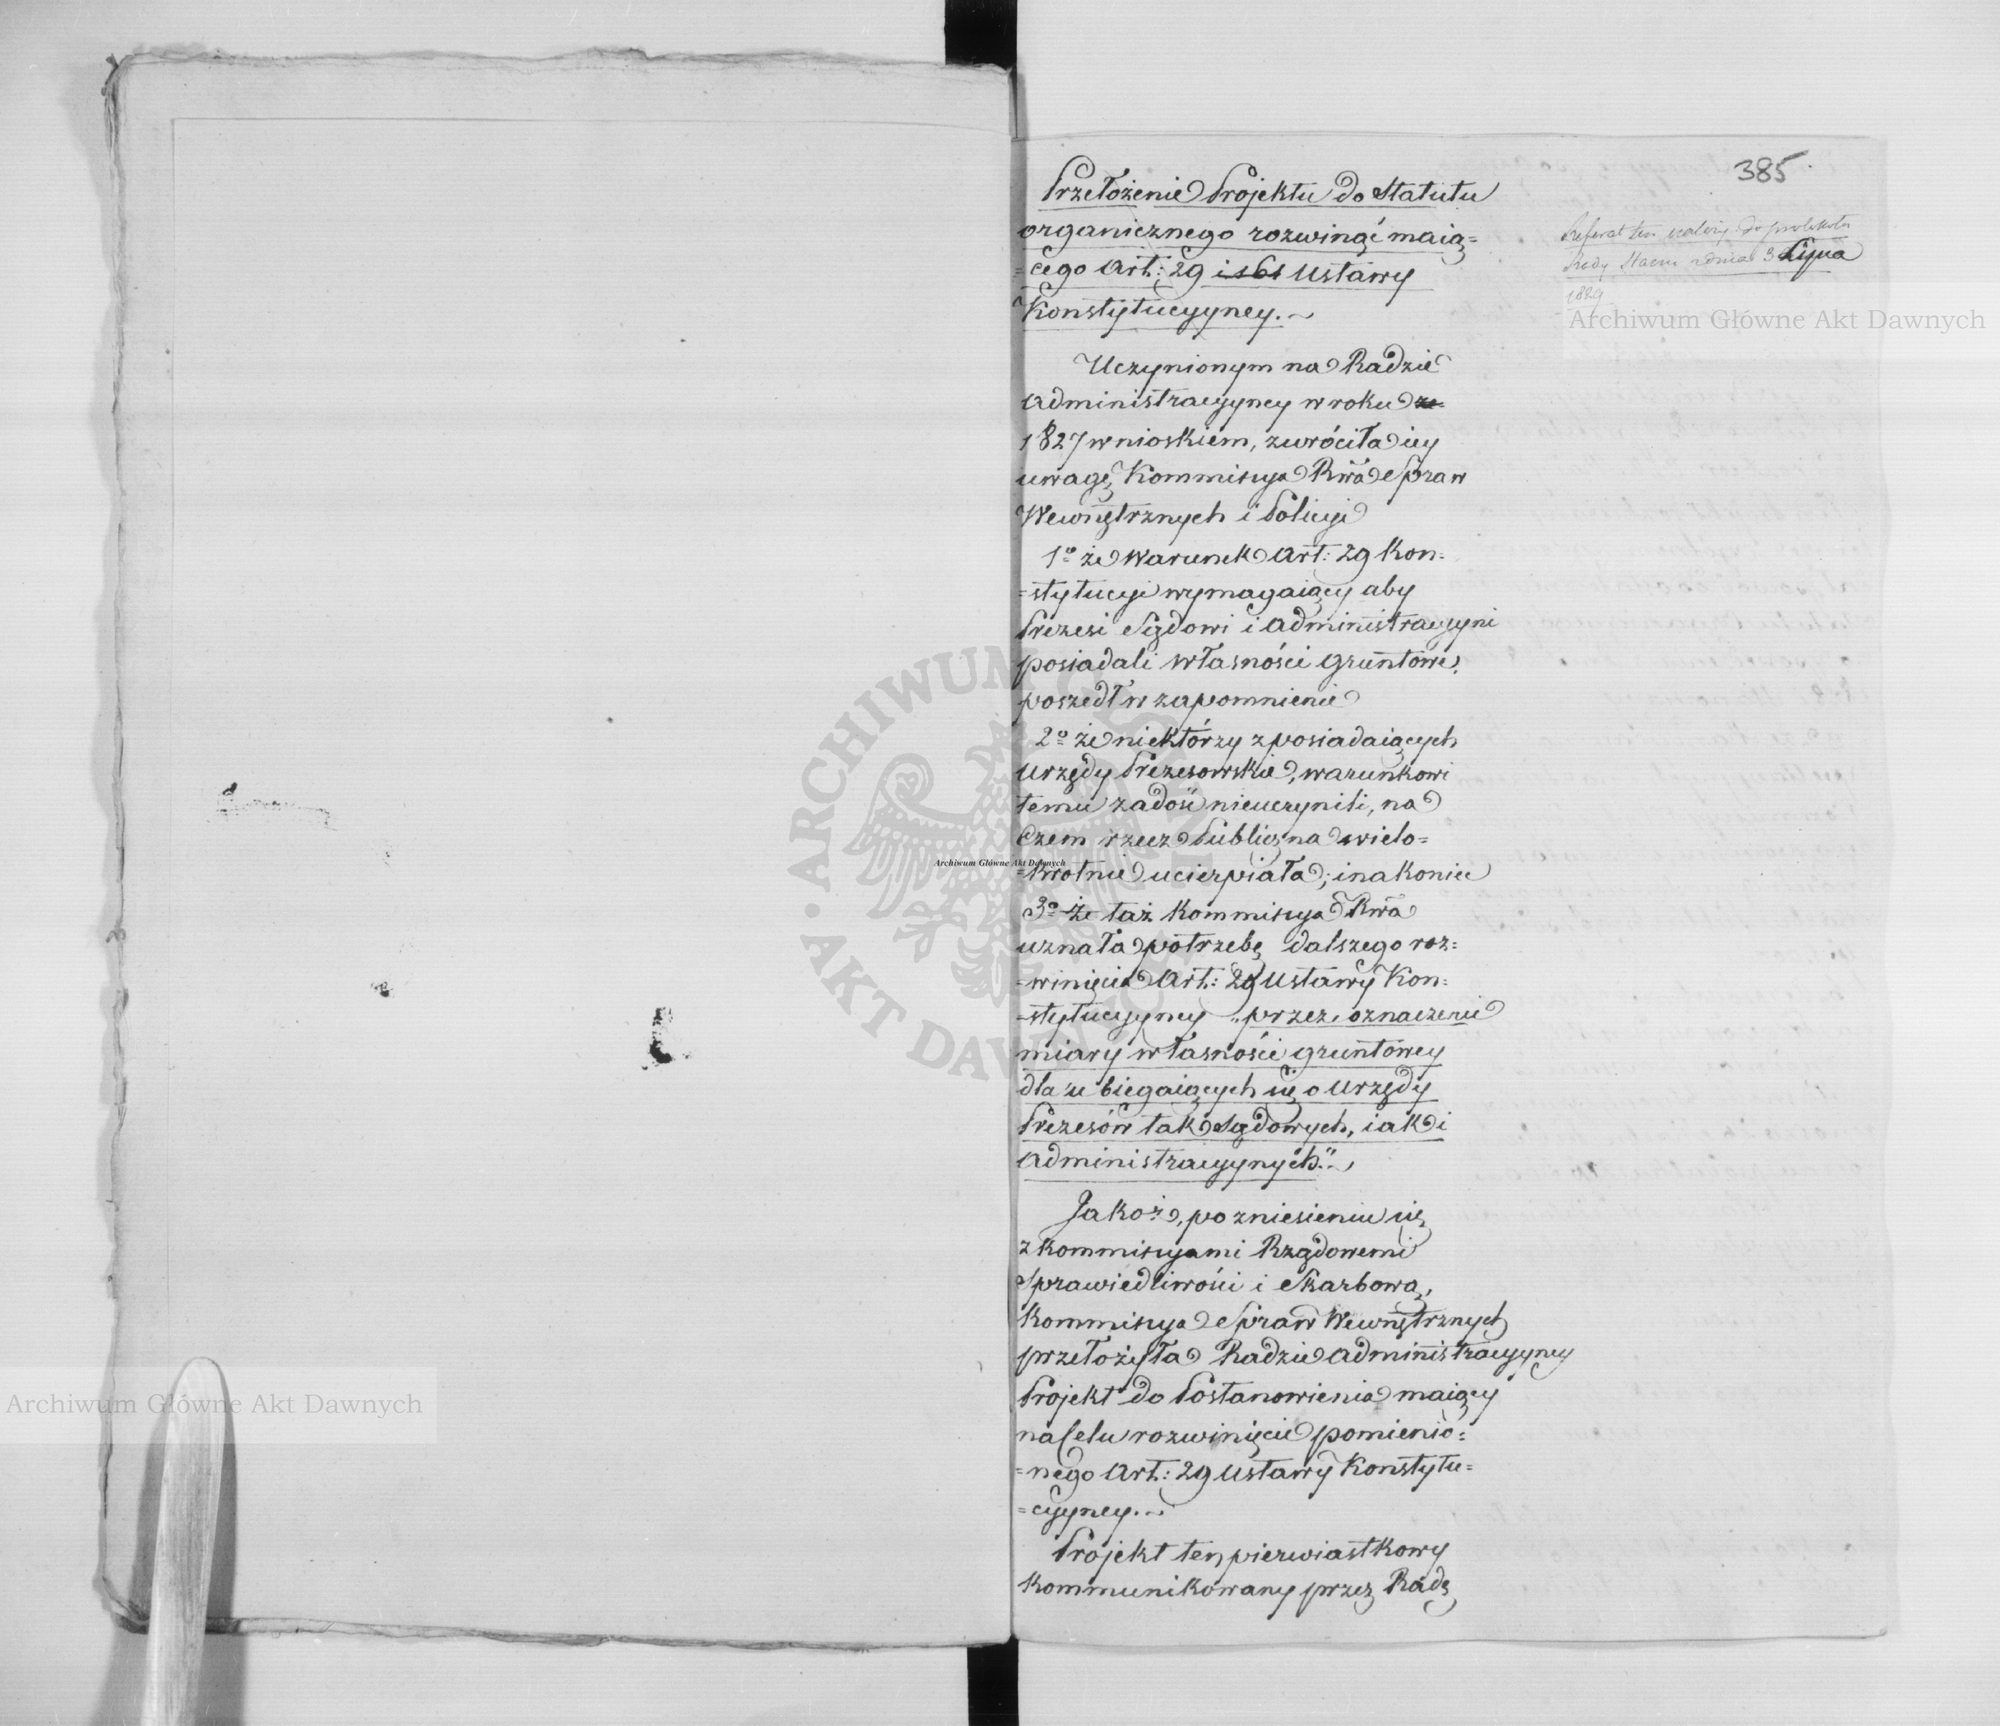 385
Przełożenie Projektu do Statutu
organicznego rozwinąć maią=
=cego Art: 29 i 161 Ustawy
Konstytucyyney.~
Referat ten należy do protokołu
Rady Stanu z dnia 3 Lipca
1829
Uczynionym na Radzie
Administracyyney w roku ze
1827 wnioskiem, zwróciła iey
uwagę Kommissya Rwa Spraw
Wewnętrznych i Policyi
1º że warunek Art: 29 Kon=
=stytucyi wymagaiący aby
Prezesi Sądowi i Administracyyni
posiadali własności gruntowe,
poszedł w zapomnienie
2º że niektórzy z posiadaiących
Urzędy Prezesowskie, warunkowi
temu zadość nieuczynili, na
czem rzecz Publiczna wielo=
=krotnie ucierpiała; i nakoniec
3º że taż Kommissya Rwa
uznała potrzebę dalszego roz=
=winięcia Art: 29 Ustawy Kon=
=stytucyyney „przez oznaczenie
miary własności gruntowey
dla ubiegaiących się o Urzędy
Prezesów tak Sądowych, iak i
Administracyynych."~
Jakoż, po zniesieniu się
z Kommissyami Rządowemi
Sprawiedliwości i Skarbową,
Kommissya Spraw Wewnętrznych
przełożyła Radzie Administracyyney
Projekt do Postanowienia maiący
na Celu rozwinięcie pomienio=
=nego Art: 29 Ustawy Konstytu=
=cyyney.~
Projekt ten pierwiastkowy
kommunikowany przez Radę
Archiwum Główne Akt Dawnych
Archiwum Główne Akt Dawnych
Archiwum Główne Akt Dawnych
ARCHIWUM GŁÓWNE · AKT DAWNYCH